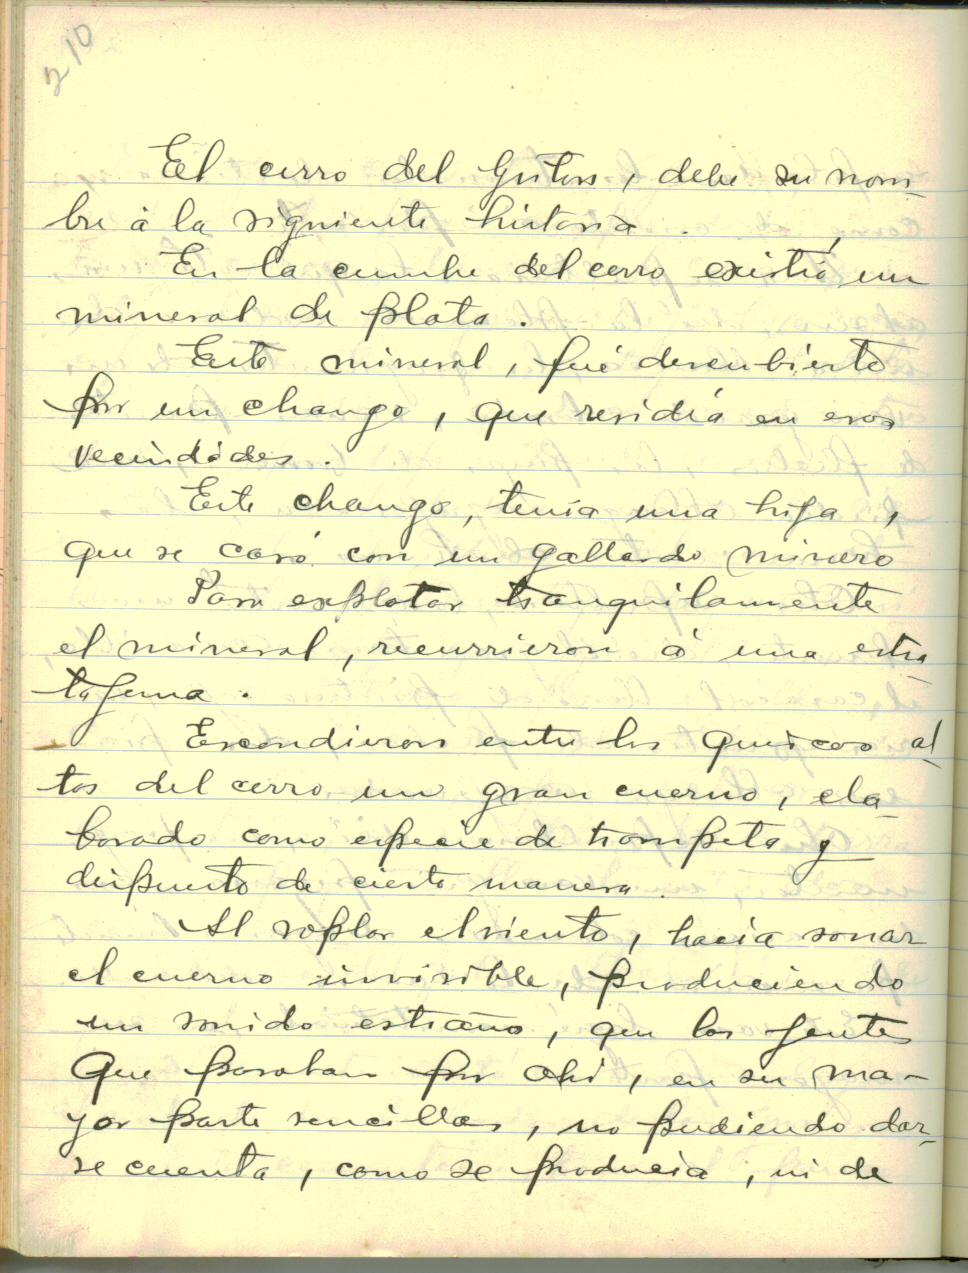 210
El cerro del Gritón, debe su nom-
bre á la siguiente historia.
En la cumbre del cerro existió un
mineral de plata.
Este mineral, fué descubierto
por un chango, que residía en esas
vecindades.
Este chango, tenía una hija,
que se casó con un gallardo minero
Para explotar tranquilamente
el mineral, recurrieron á una estra-
tajema.
Escondieron entre los quiscos al-
tos del cerro un gran cuerno, ela-
borado como especie de trompeta y
dispuesto de cierta manera.
Al soplar el viento, hacía sonar
el cuerno invisible, produciendo
un sonido estraño, que las jentes
que pasaban por ahí, en su ma-
yor parte sencillas, no pudiendo dar-
se cuenta, como se producía, ni de